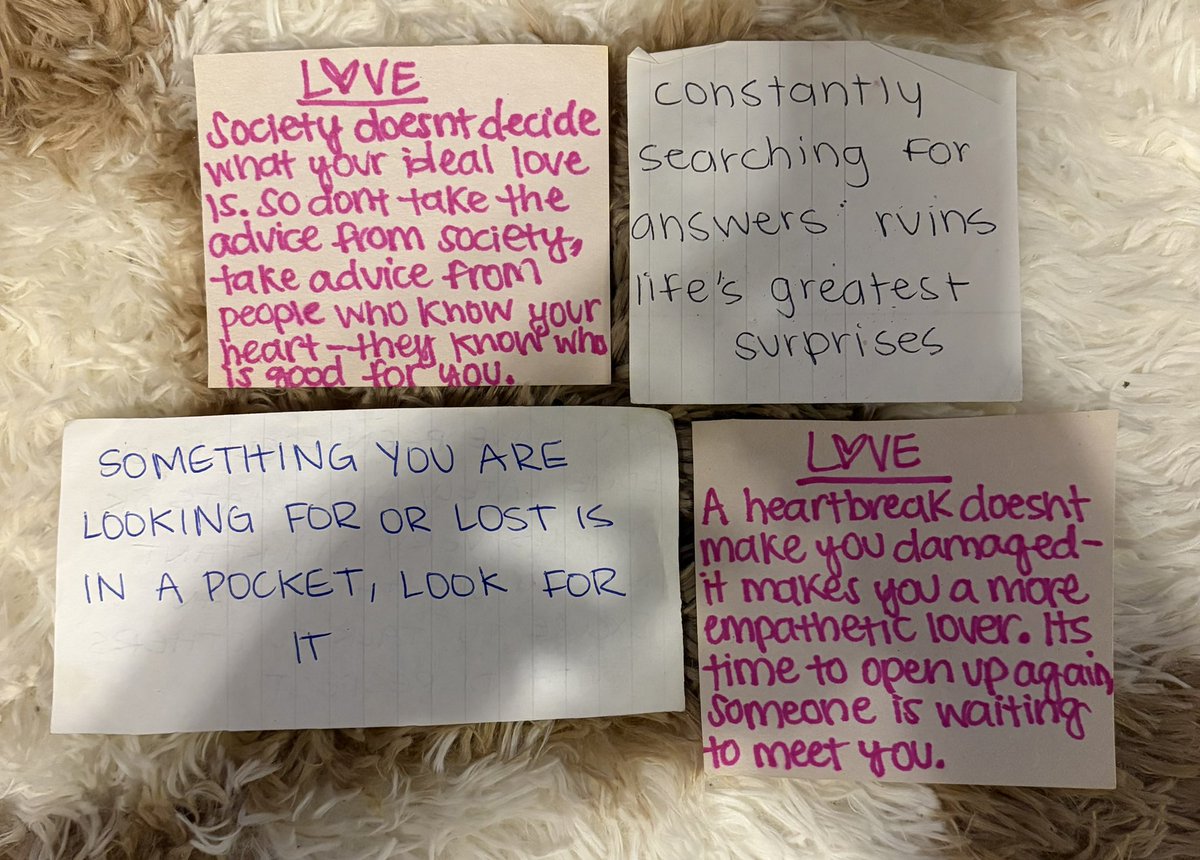 LOVE
Society doesnt decide
what your ideal love
is. So dont take the
advice from society,
take advice from
people who know your
heart—they know who
is good for you.
constantly
searching for
answers ruins
life's greatest
surprises
SOMETHING YOU ARE
LOOKING FOR OR LOST IS
IN A POCKET, LOOK FOR
IT
LOVE
A heartbreak doesnt
make you damaged—
it makes you a more
empathetic lover. Its
time to open up again,
someone is waiting
to meet you.